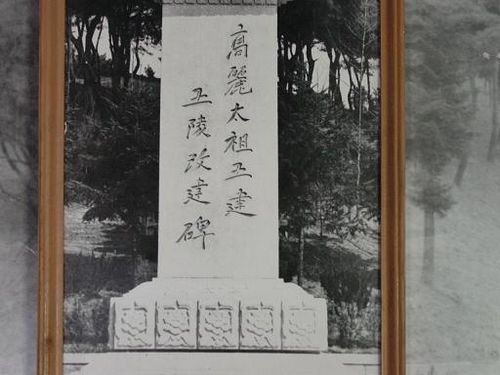 高麗太祖王建
王陵改建碑